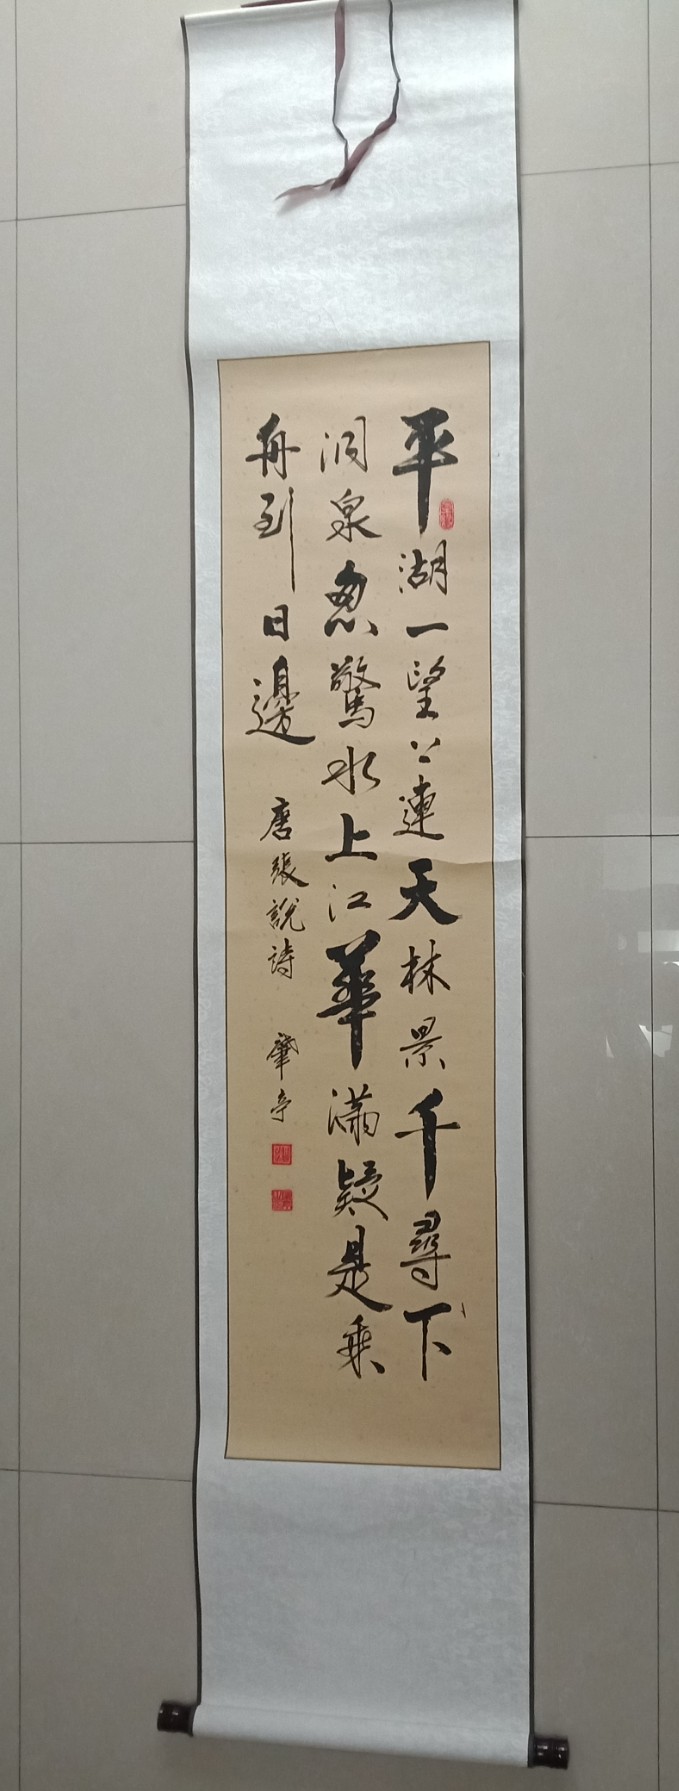 平湖一望上連天林景千尋下
洞泉忽驚水上江華滿疑是乘
舟到日邊 唐張說詩 肇亭